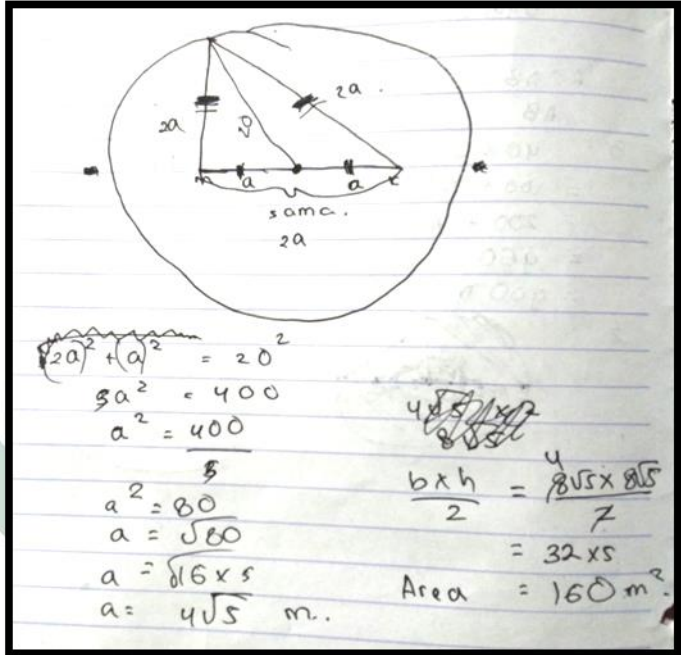 2a 20 2a
a a
same
2a
(2a)² + (a)² = 20²
5a² = 400
a² = 400/5
a² = 80
a = √80
a = √16 x 5
a = 4√5 m.
b x h / 2 = 8√5 x 8√5 / 2
4
= 32 x 5
Area = 160 m².